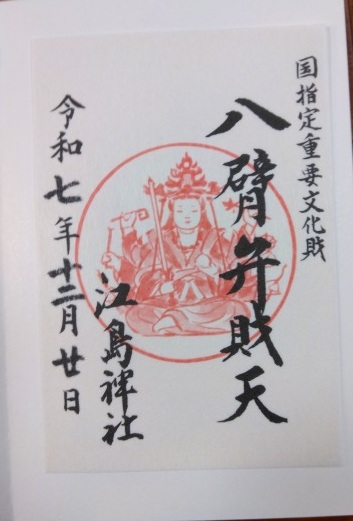 国指定重要文化財
八臂弁財天
江島神社
令和七年十二月廿日